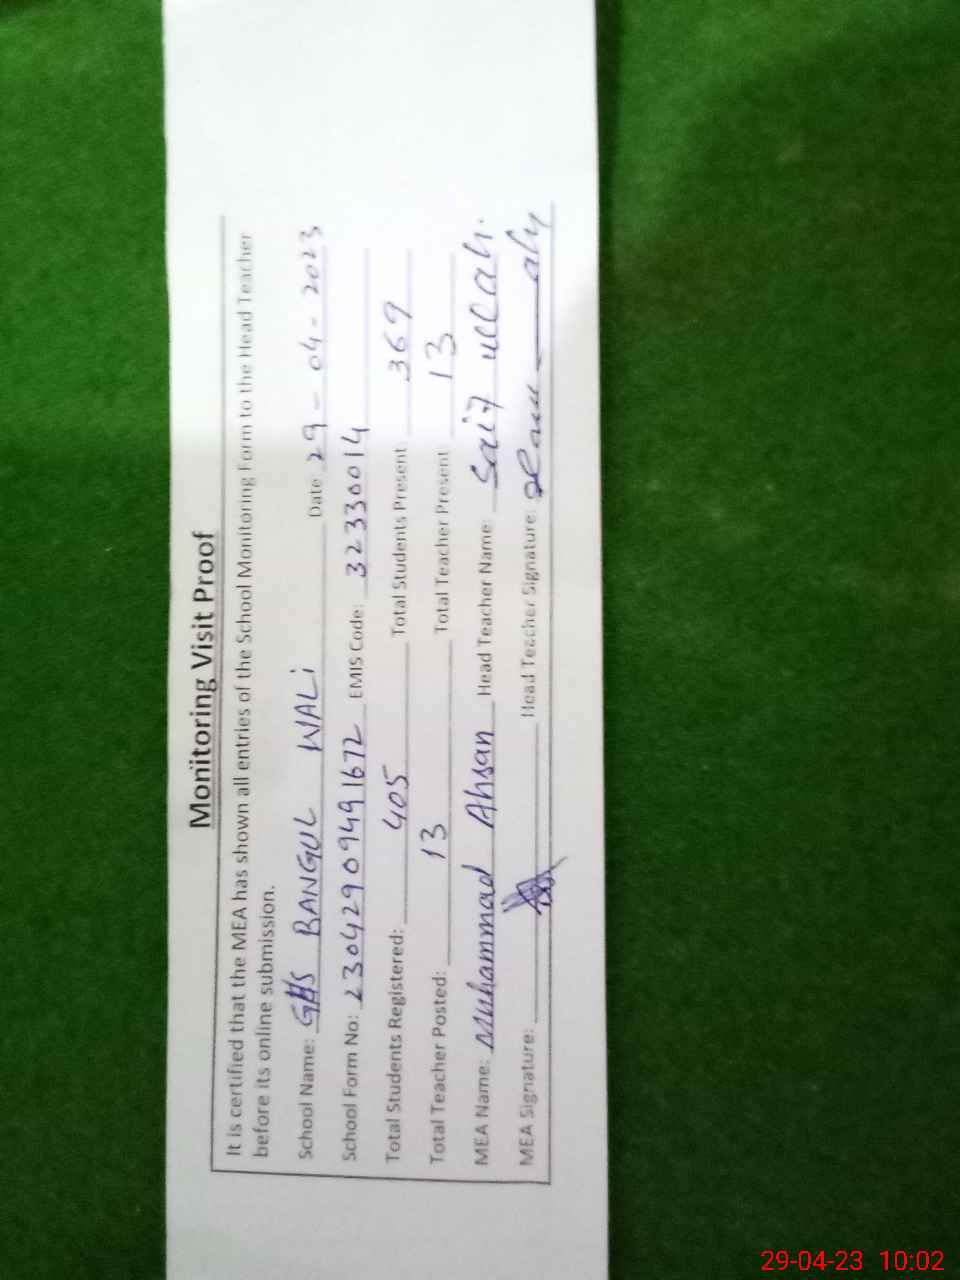 Monitoring Visit Proof
It is certified that the MEA has shown all entries of the School Monitoring Form to the Head Teacher
before its online submission.
School Name: GHS BANGUL WALi Date 29-04-2023
School Form No: 23042909491672 EMIS Code: 32330014
Total Students Registered: 405 Total Students Present: 369
Total Teacher Posted: 13 Total Teacher Present: 13
MEA Name: Muhammad Ahsan Head Teacher Name: Saif ullah.
MEA Signature: Head Teacher Signature:
29-04-23 10:02